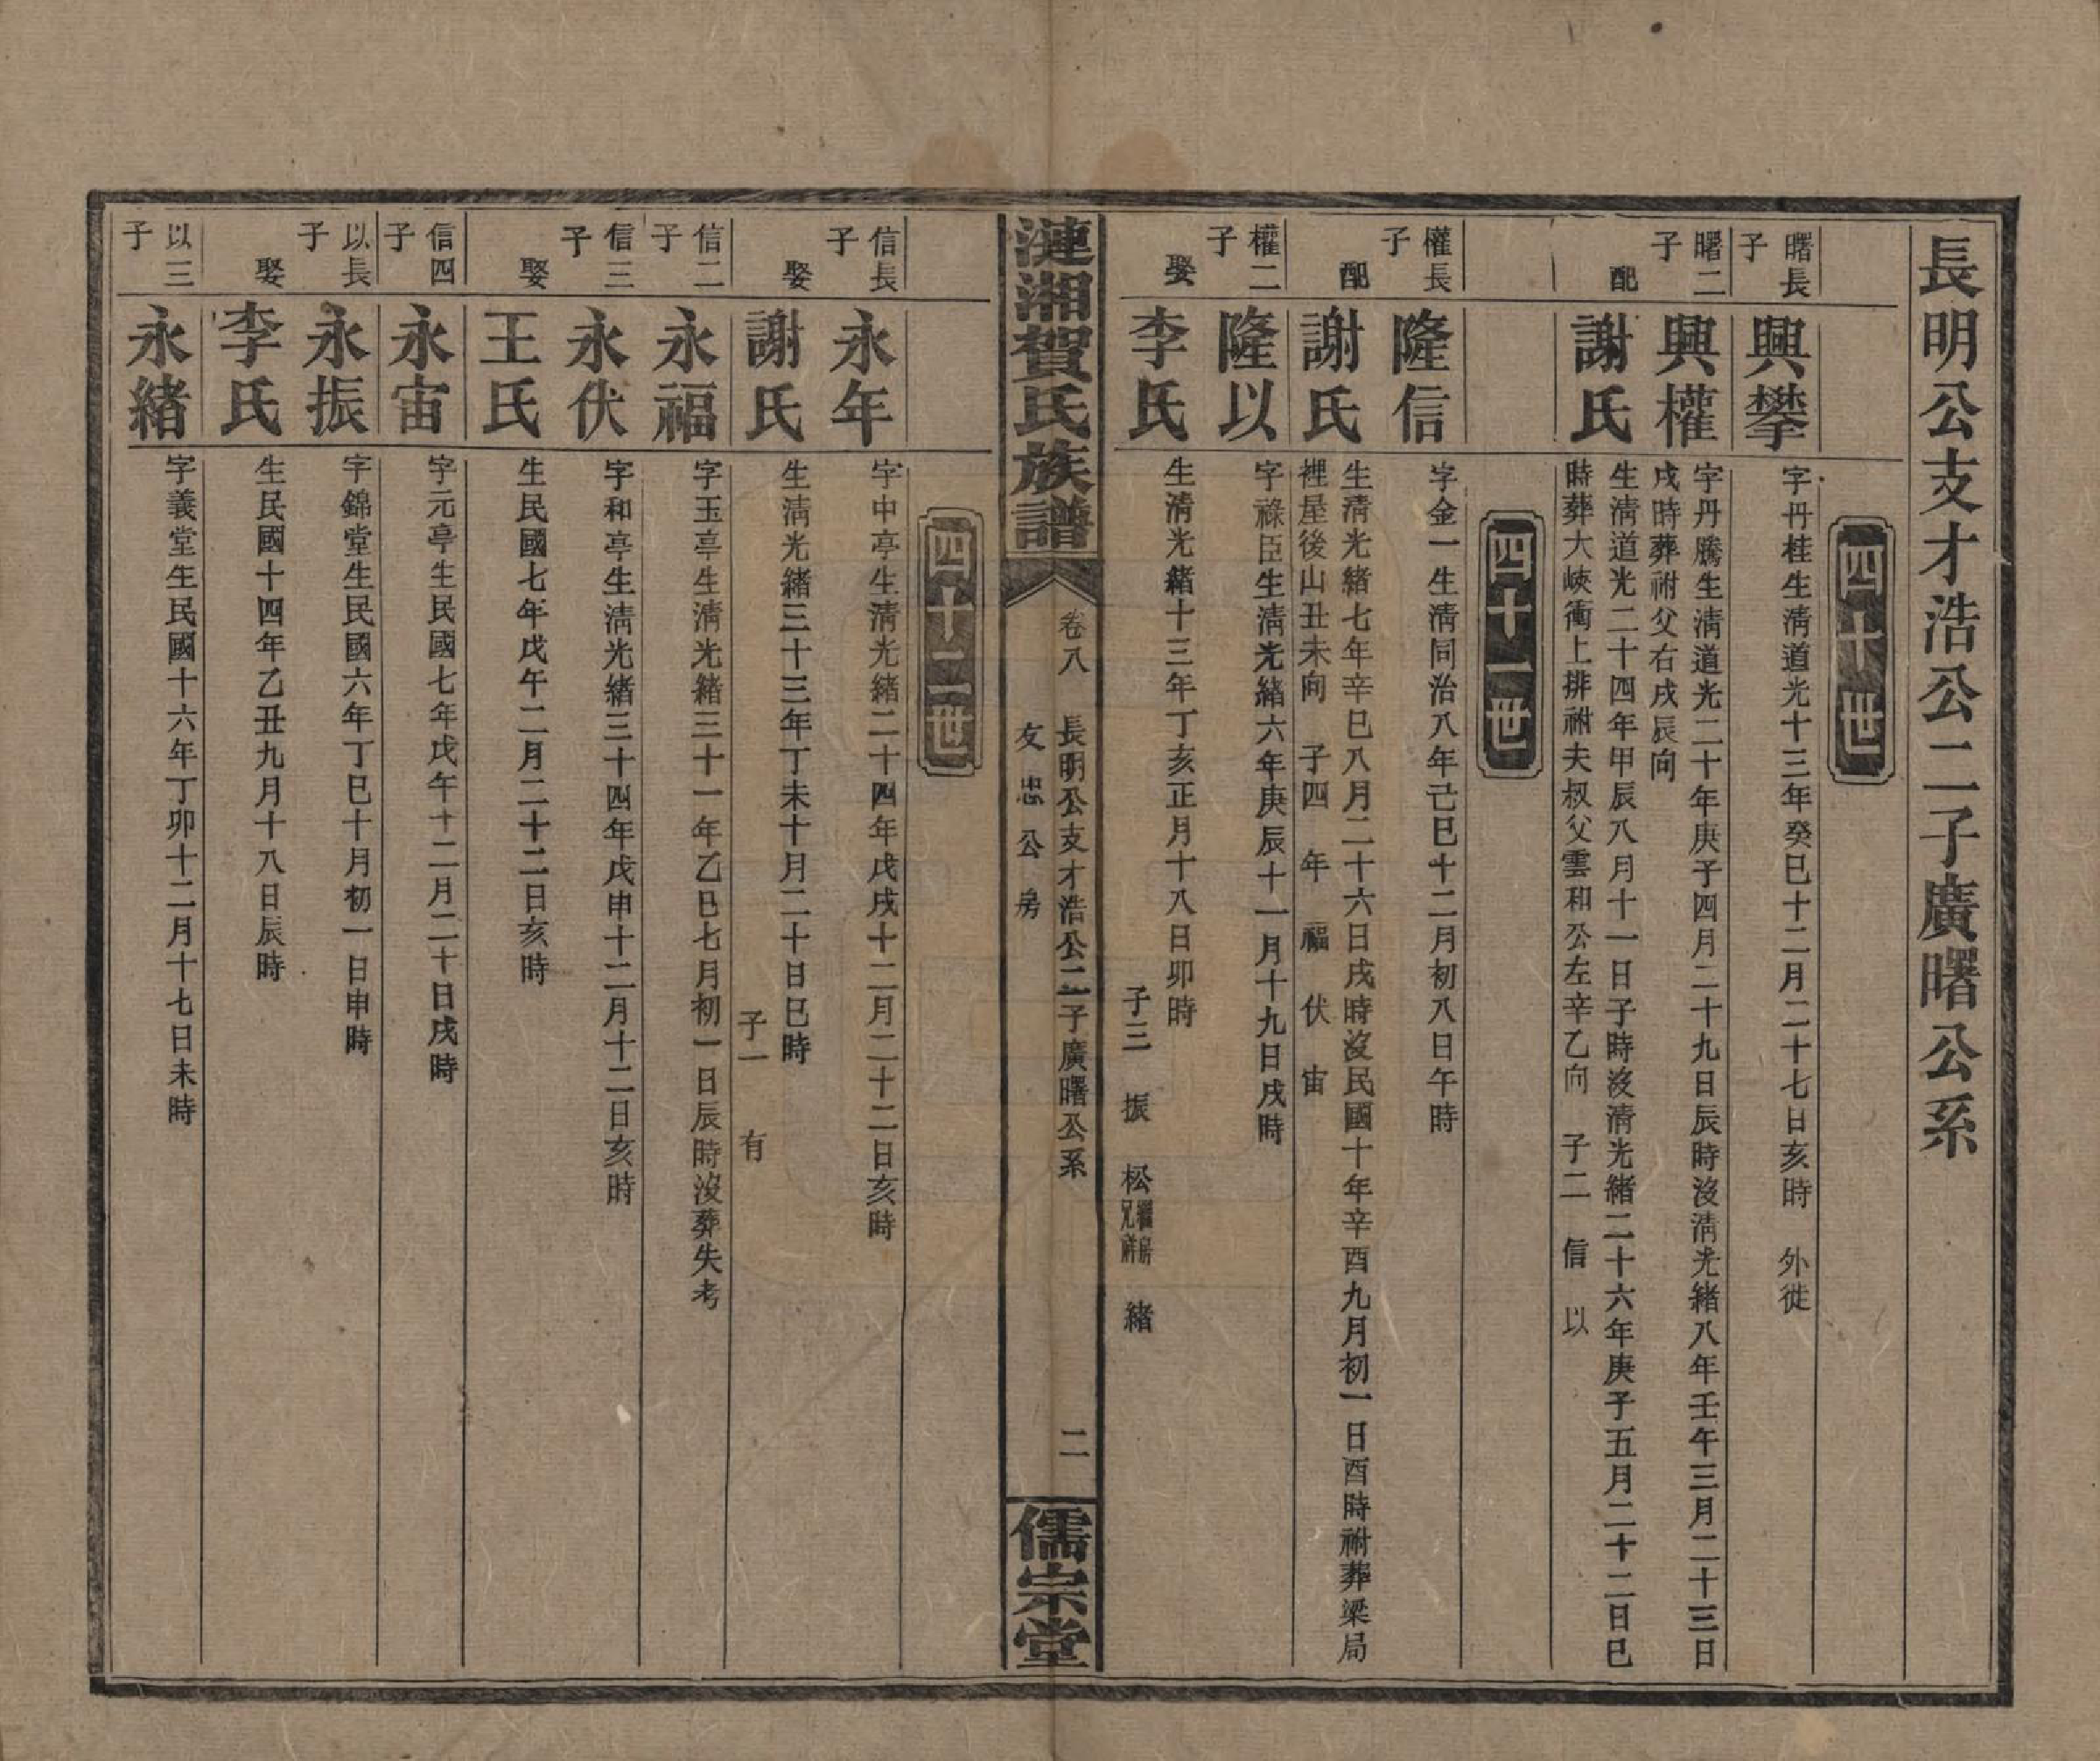 長明公支才浩公二子廣曙公系
四十世
曙長子
興攀
字丹桂生清道光十三年癸巳十二月二十七日亥時　外徙
曙二子
興權
字丹騰生清道光二十年庚子四月二十九日辰時沒清光緒八年壬午三月二十三日
戌時葬祔父右戌辰向
配
謝氏
生清道光二十四年甲辰八月十一日子時沒清光緒二十六年庚子五月二十二日巳
時葬大峽衝上排祔夫叔父雲和公左辛乙向　子二　信　以
四十一世
權長子
隆信
字金一生清同治八年己巳十二月初八日午時
配
謝氏
生清光緒七年辛巳八月二十六日戌時沒民國十年辛酉九月初一日酉時祔葬梁局
裡屋後山丑未向　子四　年　福　伏　宙
權二子
隆以
字祿臣生清光緒六年庚辰十一月十九日戌時
娶
李氏
生清光緒十三年丁亥正月十八日卯時
子三　振　松繼房兄　緒
漣湘賀氏族譜
卷八　長明公支才浩公二子廣曙公系
友忠公房
二
儒宗堂
四十二世
信長子
永年
字中亭生清光緒二十四年戊戌十二月二十二日亥時
娶
謝氏
生清光緒三十三年丁未十月二十日巳時
子一　有
信二子
永福
字玉亭生清光緒三十一年乙巳七月初一日辰時沒葬失考
信三子
永伏
字和亭生清光緒三十四年戊申十二月十二日亥時
娶
王氏
生民國七年戊午二月二十二日亥時
信四子
永宙
字元亭生民國七年戊午十二月二十日戌時
以長子
永振
字錦堂生民國六年丁巳十月初一日申時
娶
李氏
生民國十四年乙丑九月十八日辰時
以三子
永緒
字義堂生民國十六年丁卯十二月十七日未時